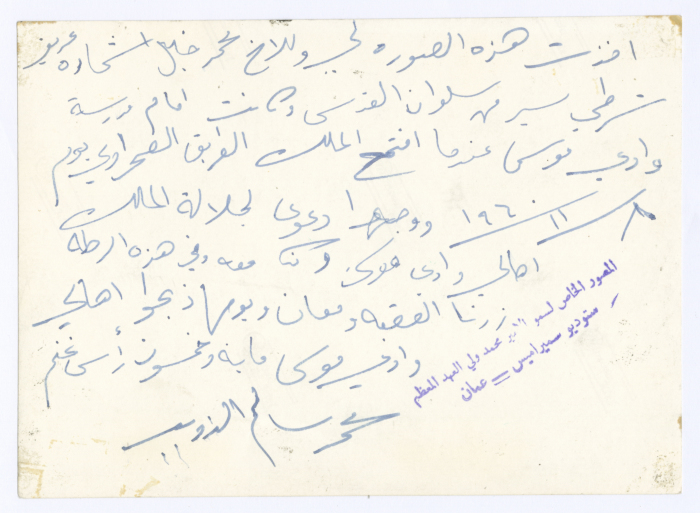 اخذت هذه الصوره لي وللاخ محمد خليل شحاده عريف
شرطي سير من سلوان القدس وكانت امام مدرسة
وادي موسى عندما افتتح الملك الطريق الصحراوي يوم
٨ / ١١ / ١٩٦٠ ووجهوا دعوى لجلالة الملك
اهالي وادي موسى وكنا معه وفي هذه الرحلة
زرنا العقبه ومعان ويومها ذبحوا اهالي
وادي موسى ماية وخمسون رأس غنم
محمد سالم
المصور الخاص لسمو الامير محمد ولي العهد المعظم
ستوديو سميراميس = عمان